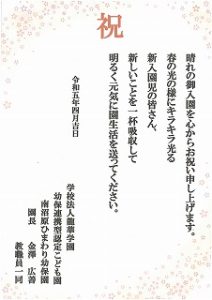 祝
晴れの御入園を心からお祝い申し上げます。
春の光の様にキラキラ光る
新入園児の皆さん、
新しいことを一杯吸収して
明るく元気に園生活を送ってください。
令和五年四月吉日
学校法人龍華学園
幼保連携型認定こども園
南沼原ひまわり幼保園
園長 金澤 広善
教職員一同